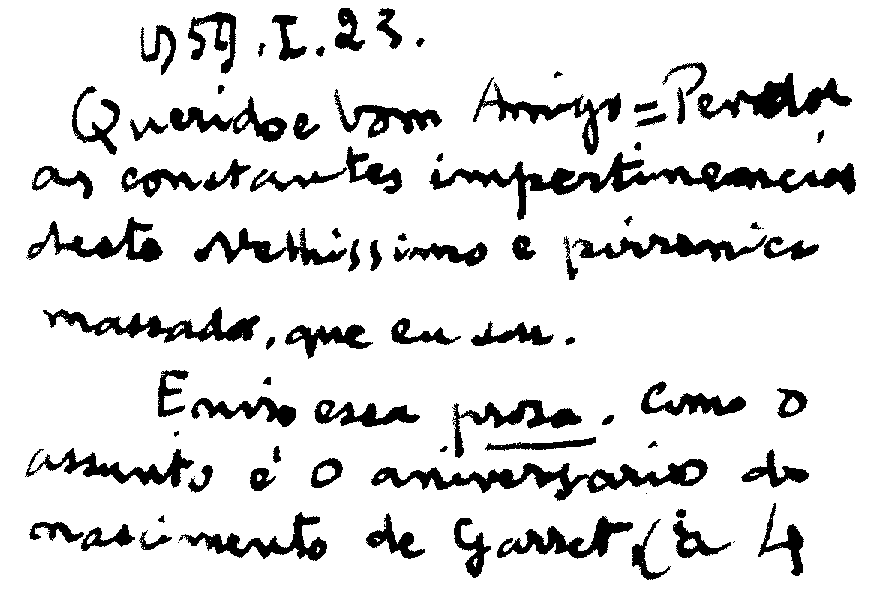 59.I.23.
Querido e bom Amigo = Perdoe
as constantes impertinencias
deste velhissimo e pirronico
massador, que eu sou.
Envio essa prosa. Como o
assunto é o aniversario do
nascimento de Garret, (a 4